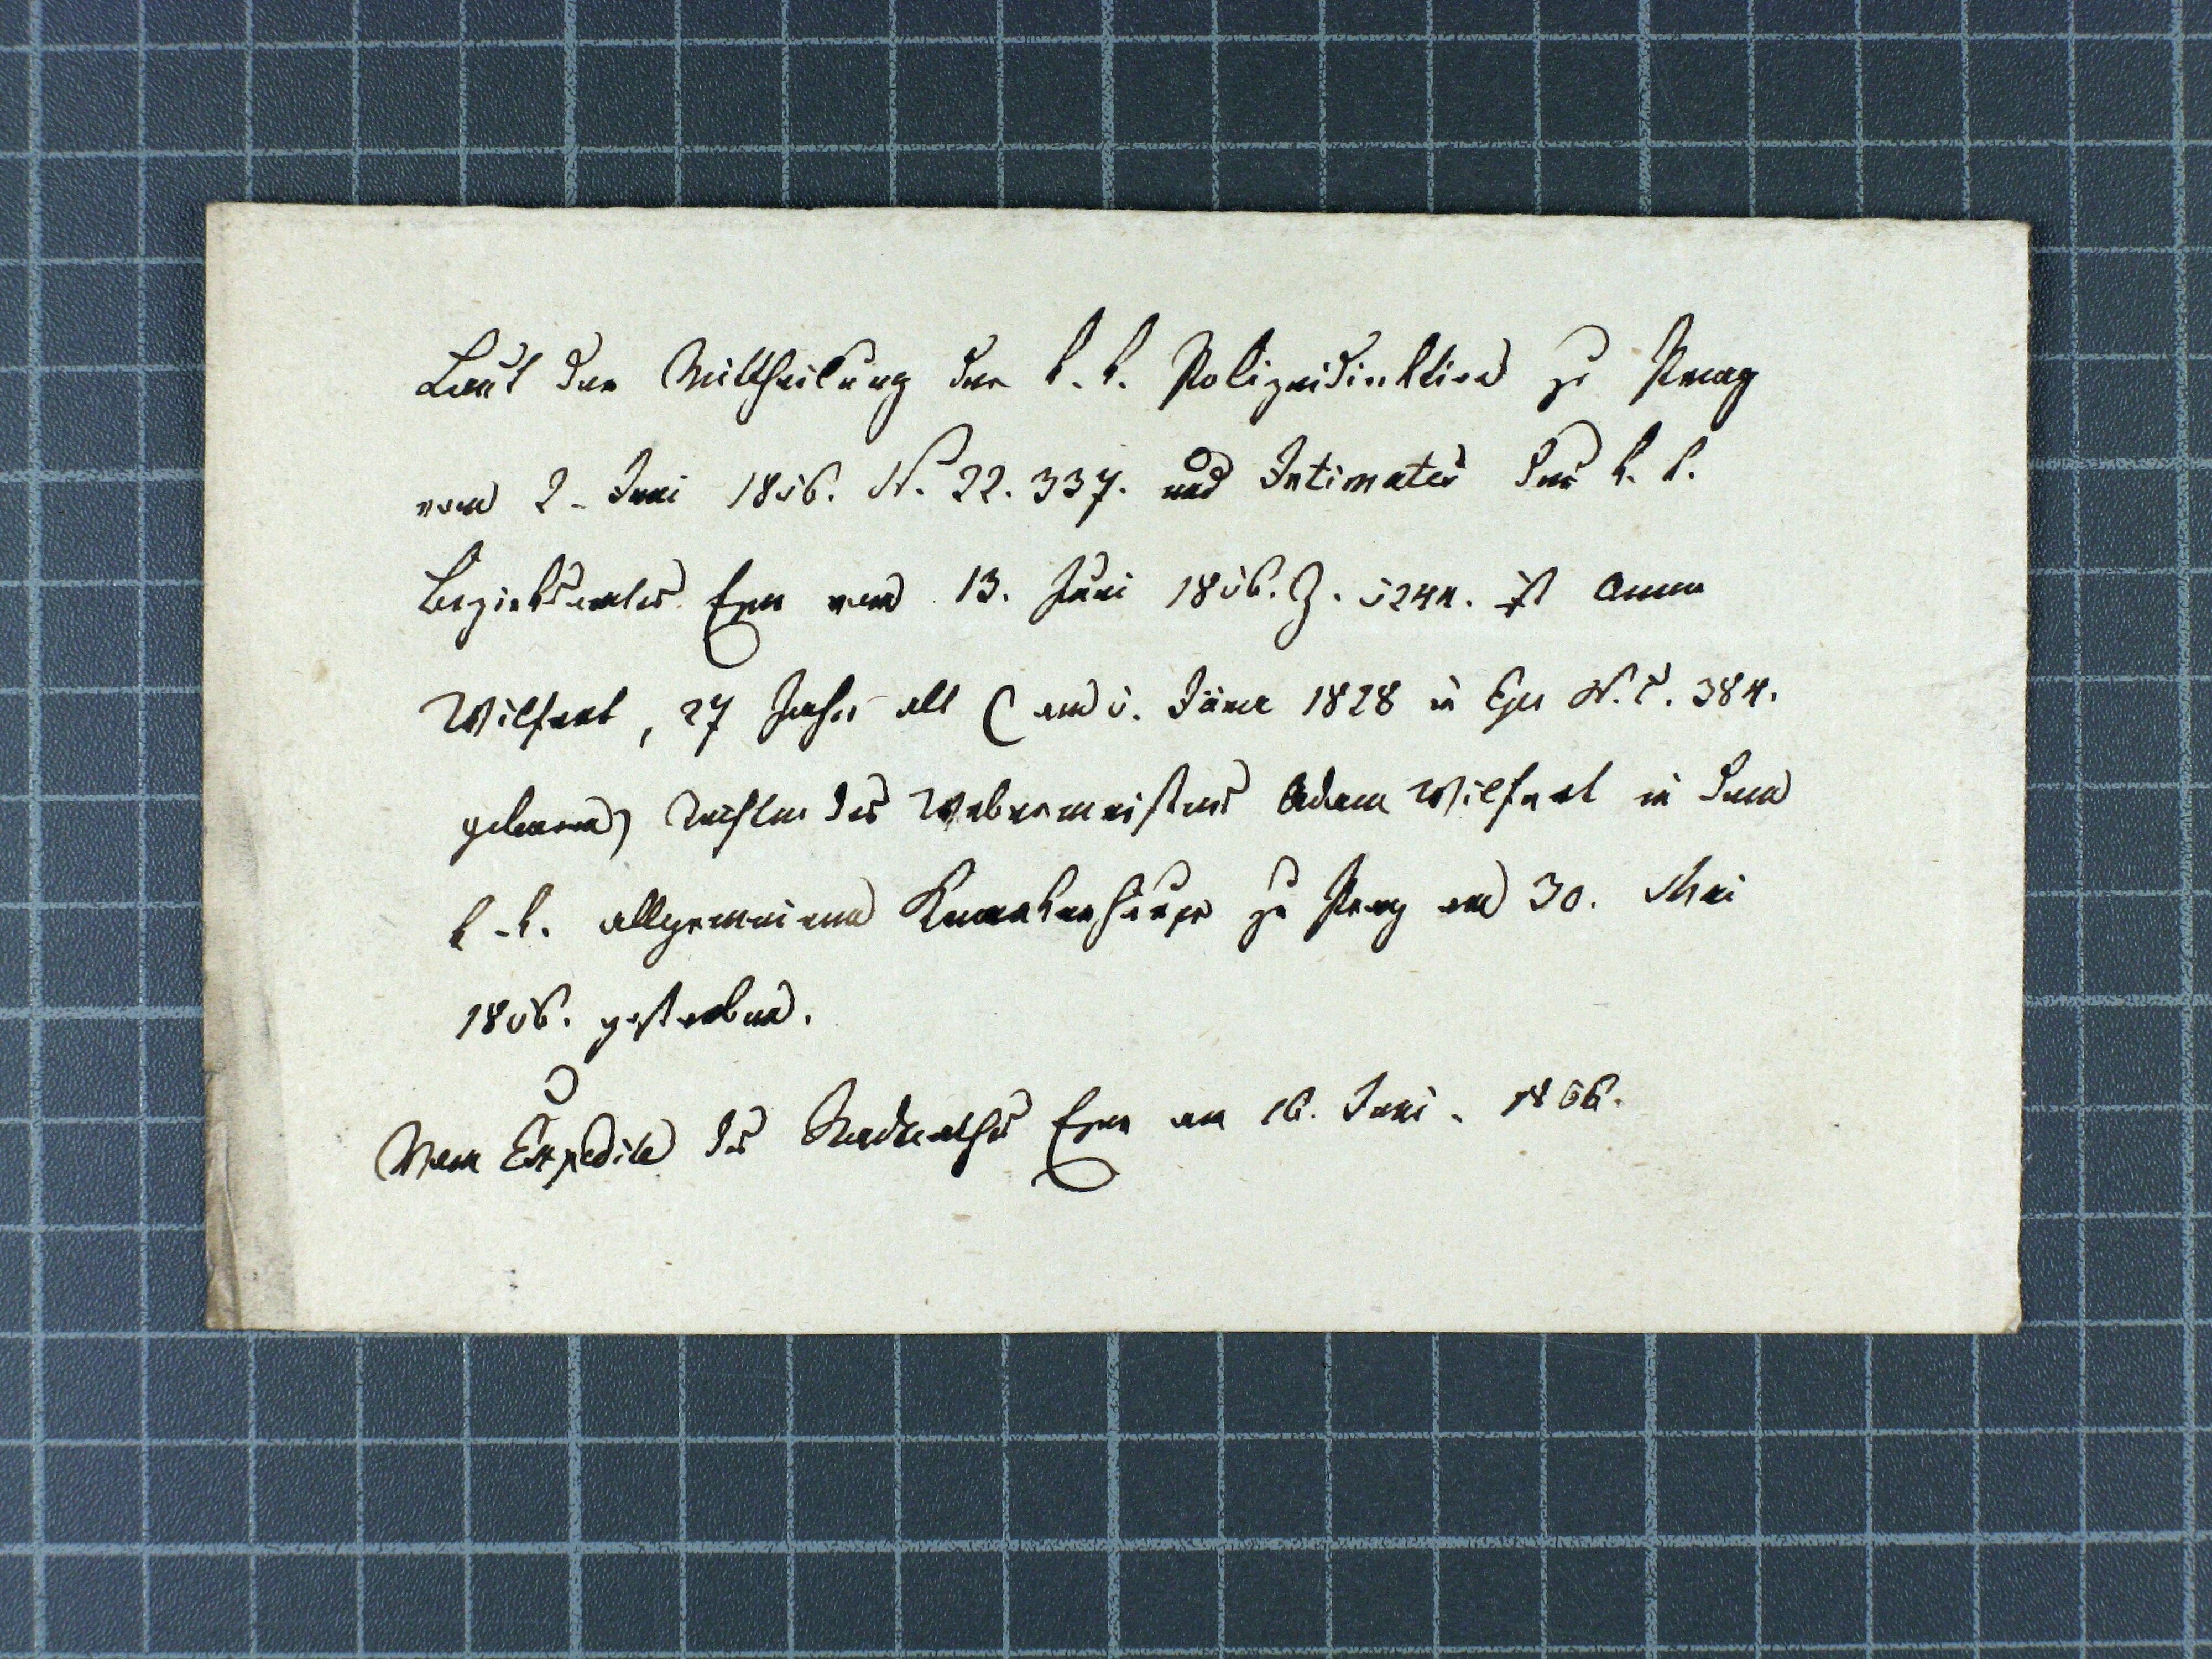 Laut der Mittheilung der k. k. Polizeidirektion zu Prag
vom 2. Juni 1856. N. 22.337. und Intimates des k. k.
Bezirksamtes Eger vom 13. Juni 1856. Z. 5244. ist Anna
Wilfert, 27 Jahre alt (am 5. Jäner 1828 in Eger N. C. 384.
geboren) Tochter des Webermeisters Adam Wilfert in dem
k. k. allgemeinen Krankenhause zu Prag am 30. Mai
1856. gestorben.
Vom Expedite des Stadtrathes Eger am 16. Juni. 1856.